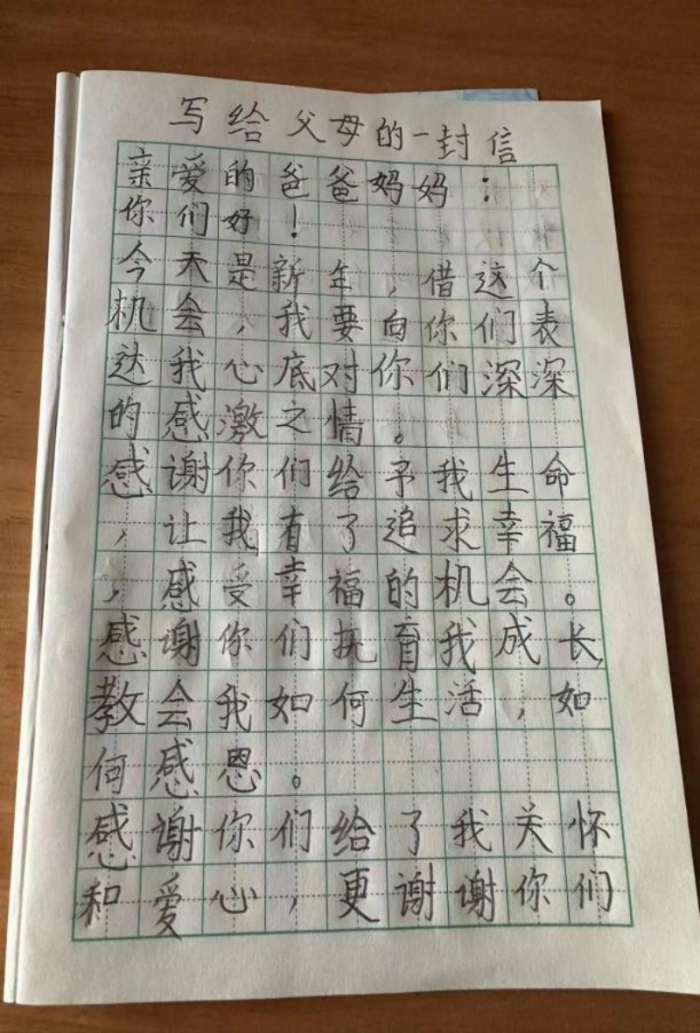 写给父母的一封信
亲爱的爸爸妈妈：
你们好！
今天是新年，借这个
机会，我要向你们表
达我心底对你们深深
的感激之情。
感谢你们给予我生命
，让我有了追求幸福
，感受幸福的机会。
感谢你们抚育我成长，
教会我如何生活，如
何感恩。
感谢你们给了我关怀
和爱心，更谢谢你们